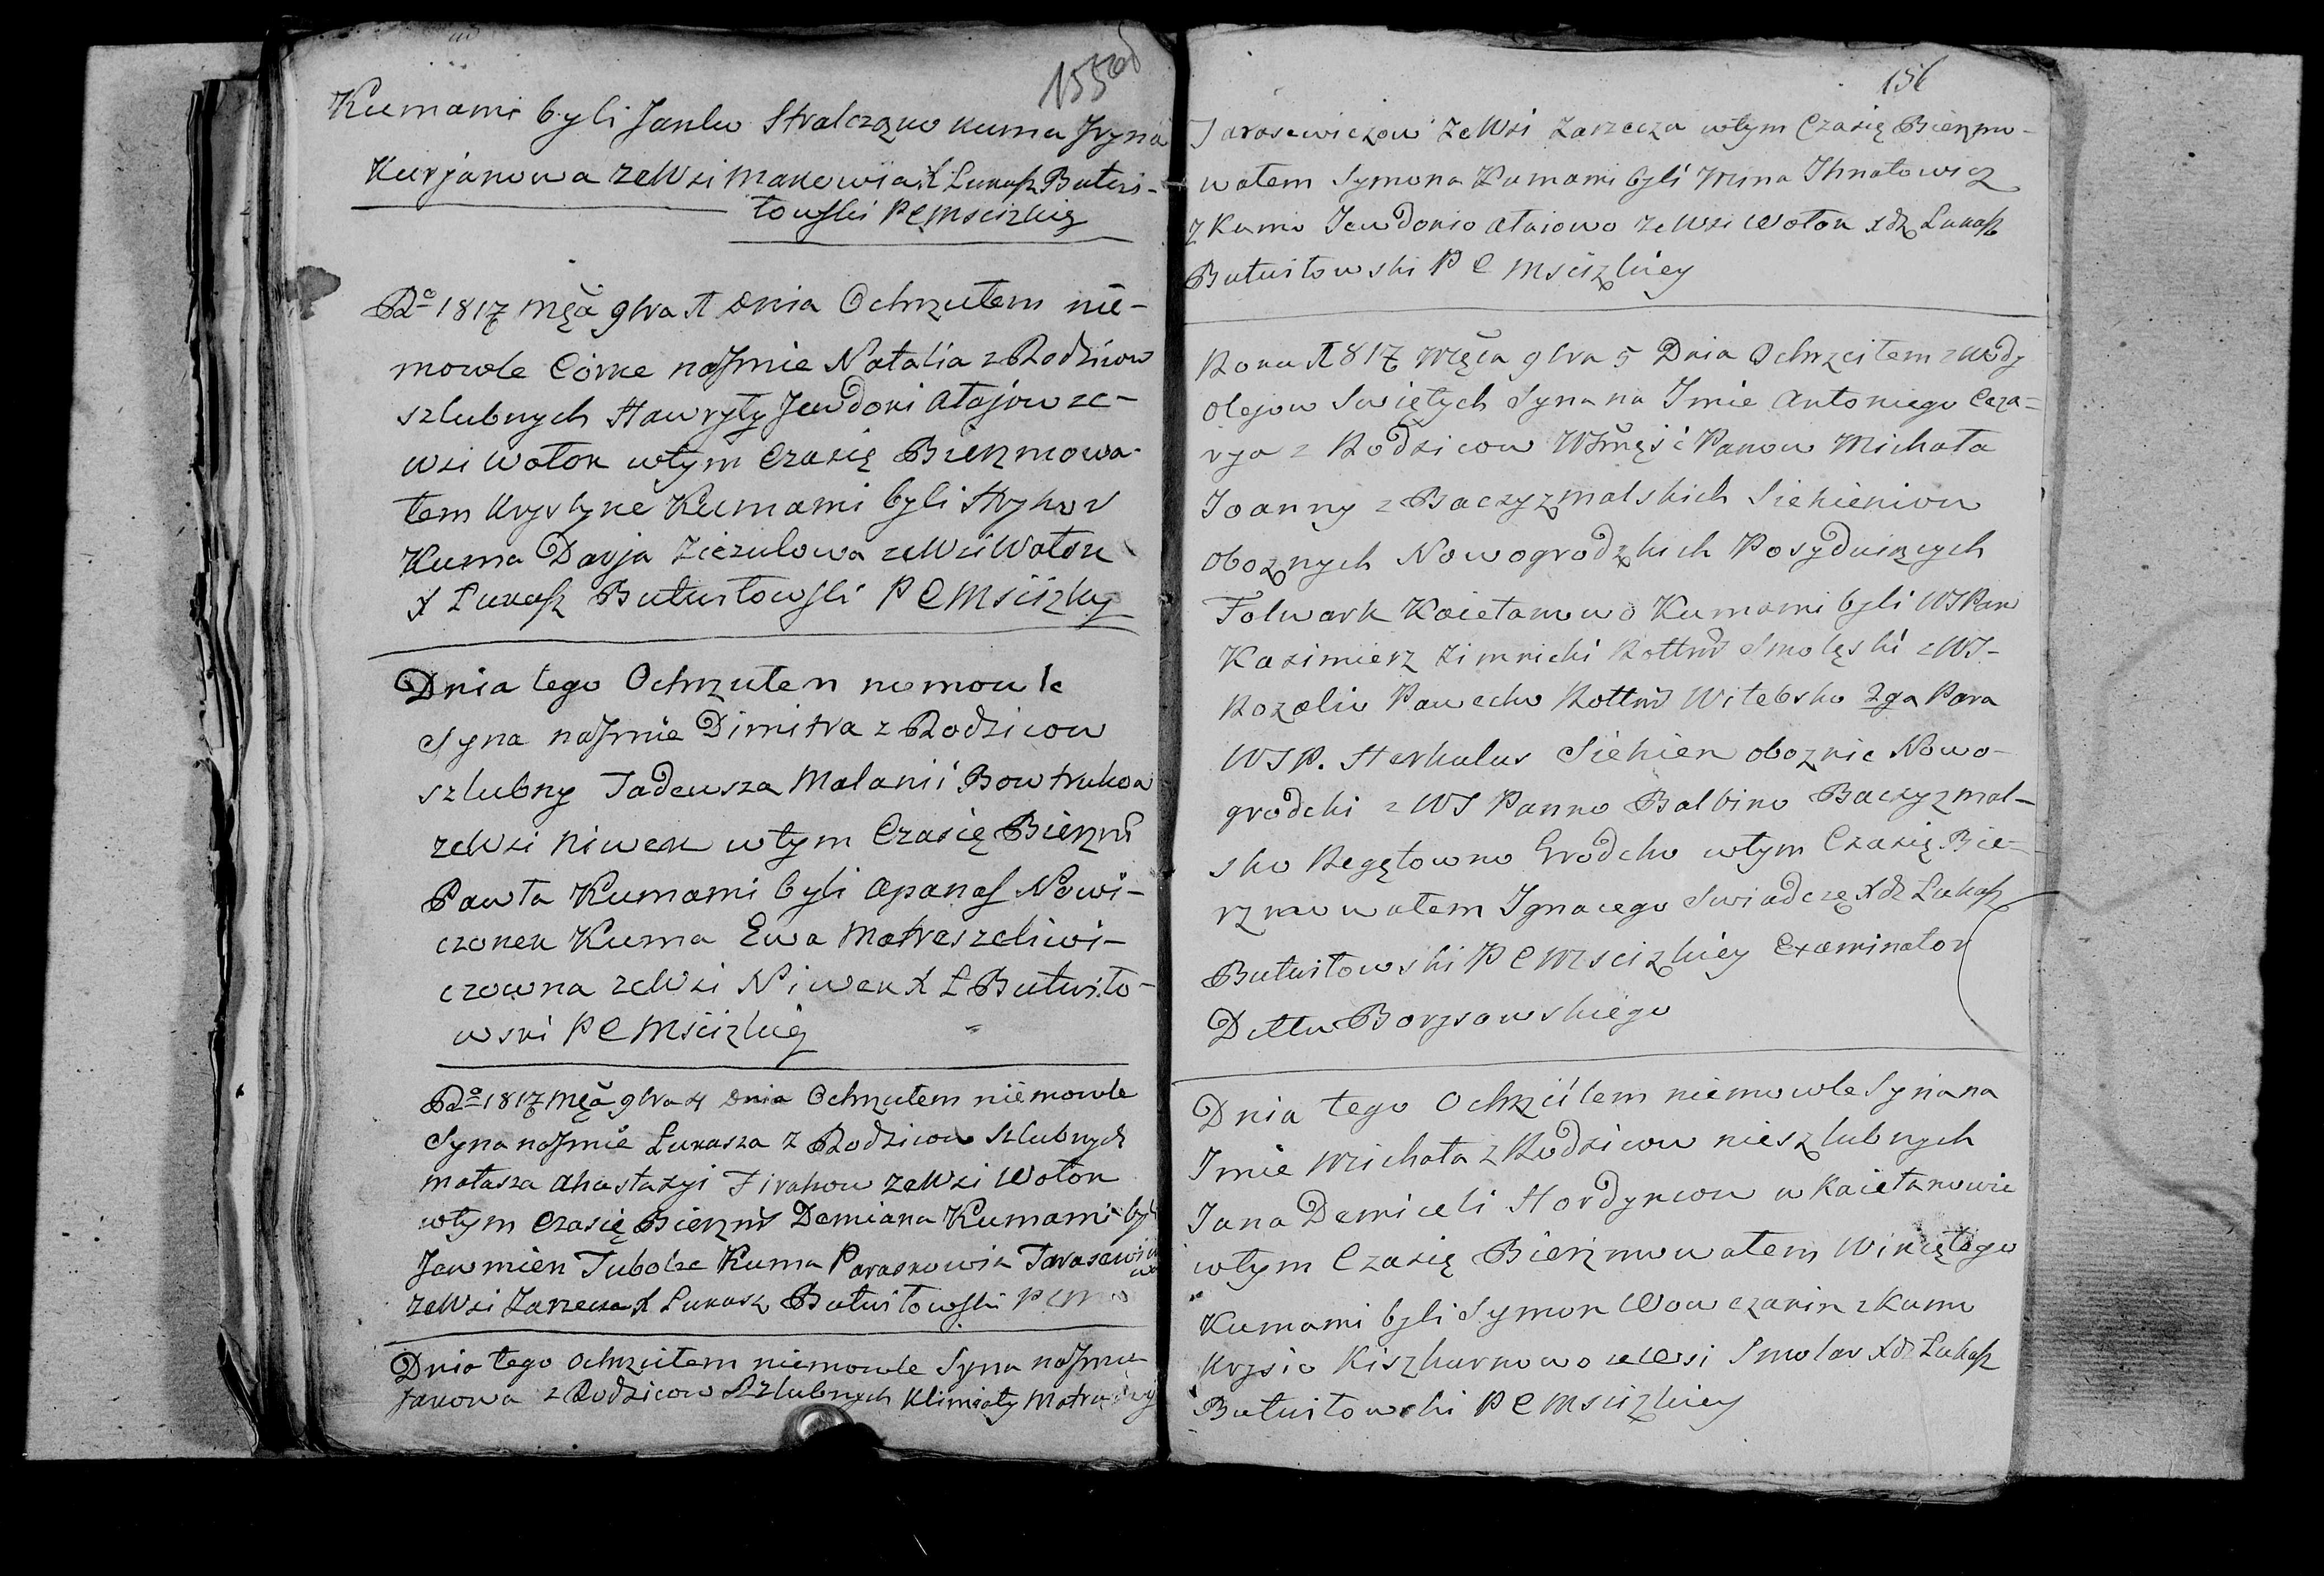 155 od
Kumami byli Janko Stralczonu kuma Jryna
Kurjanowa zeWsi Makowia X Łukasz Butwi-
towski PCMscizkiy
Ro 1817 Męca 9bra 1 Dnia Ochrzcitem nie-
mowle Corke naJmie Natalia z Rodzicow
szlubnych Hawryły Jewdoki Atajow ze-
Wsi Wołok wtym Czasię Bierzmowa-
tem Krystyne Kumami byli Hryhor
Kuma Darja Ziezulowa zeWsi Wołok
X Łukasz Butwitowski PCMscizkiy
Dnia tego Ochrzcitem niemowle
Syna naJmie Dimitra z Rodzicow
szlubny Tadeusza Malanii Bowtrukow
zeWsi Niwek wtym Czasię Bierzm
Pawła Kumami byli Apanas Nowi-
czonek Kuma Ewa Matraszeliwi-
czowna zeWsi Niwek X Ł Butwito-
wski PCMscizkiy
Ro 1817 Męca 9bra 4 Dnia Ochrzcitem niemowle
Syna naJmie Łukasza z Rodzicow Szlubnych
Matasza Ahastazyi Firahow zeWsi Wołok
wtym Czasię Bierzm Demiana Kumami byli
Jewmien Tubolze Kuma Paraskowia Tarasewi
zeWsi Zarzecza X Łukasz Butwitowski PCM
Dnia tego Ochrzcitem niemowle Syna naJmie
Jakowa z Rodzicow Szlubnych Klimiaty Matru
156
Jarosewiczow zeWsi Zarzecza wtym Czasię Bierzmo-
watem Symona Kumami byli Mina Ihnatowicz
z Kumo Jewdokio Ataiowo zeWsi Wołok Xdz Łukasz
Butwitowski P C Mscizkiey
Roku 1817 Męca 9bra 5 Dnia Ochrzcitem z Wody
Olejow Swiętych Syna na Imie Antoniego Ceza-
rya z Rodzicow WJmęść Panow Michała
Joanny z Baczyzmalskich Siehieniow
Oboznych Nowogrodzkich Posyduiących
Folwark Kaietanowo Kumami byli WJPan
Kazimierz Zimnicki Rottm Smoleski z WJ-
Rozalio Pawecho Rottm Witebsko 2ga Para
WJP. Herkulus Siehien oboznic Nowo-
grodzki z WJ Panno Balbino Baczyzmal-
sko Regętowno Grodzko wtym Czasię Bie-
rzmowatem Ignacego Swiadczę Xdz Łukasz
Butwitowski P C Mscizkiey Examinator
Dettu Borysowskiego
Dnia tego Ochrzcitem niemowle Syna na
Imie Michała z Rodzicow nieszlubnych
Jana Demiceli Hordyncow w Kaietanowie
wtym Czasię Bierzmowatem Wincętego
Kumami byli Symon Wowczanin z Kumo
Krysio Kiszkurnowo zeWsi Smolar Xdz Łukasz
Butwitowski P C Mscizkiey